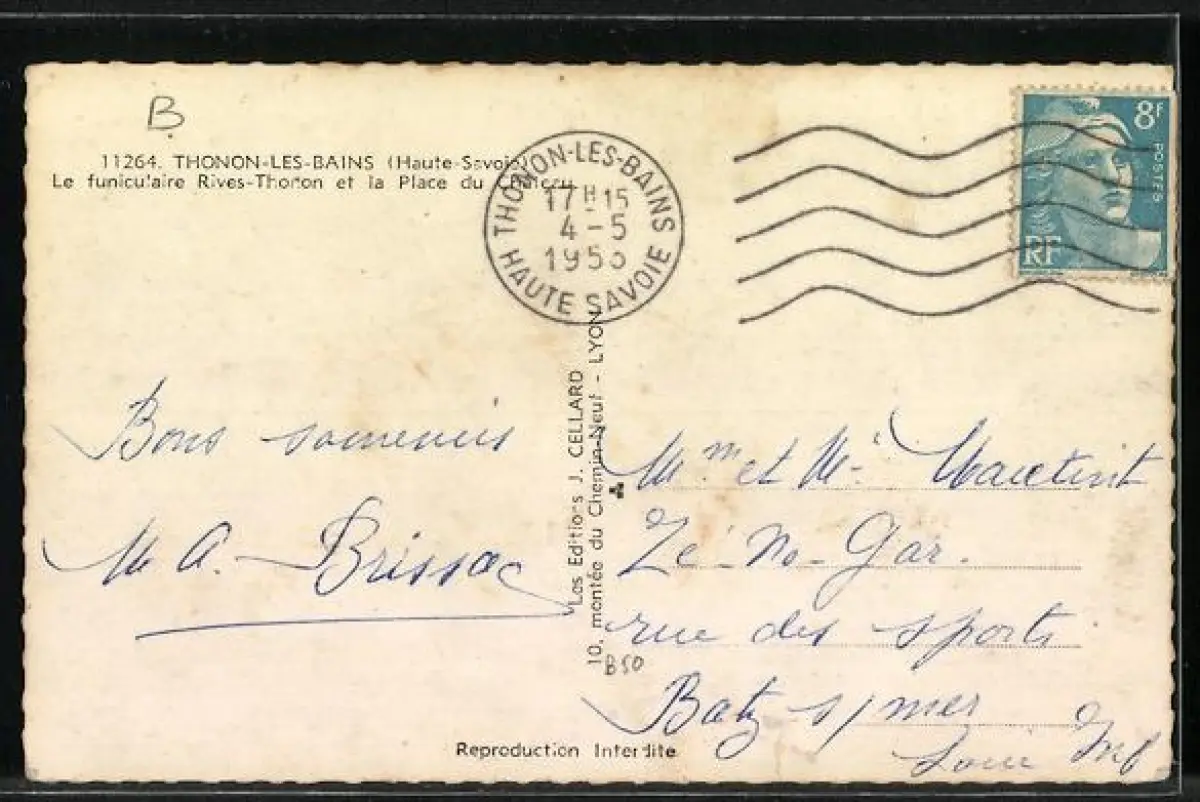 B
11264. THONON-LES-BAINS (Haute-Savoie)
Le funiculaire Rives-Thonon et la Place du Château
THONON-LES-BAINS
17H15
4-5
195
HAUTE SAVOIE
8F
POSTES
RF
Bons souvenirs
M A. Brissac
Les Editions J. CELLARD
10, montée du Chemin-Neuf - LYON
B50
Mm et Mr
Ze-No-Gar.
rue des sports
Batz s/ mer
Loire Inf
Reproduction Interdite